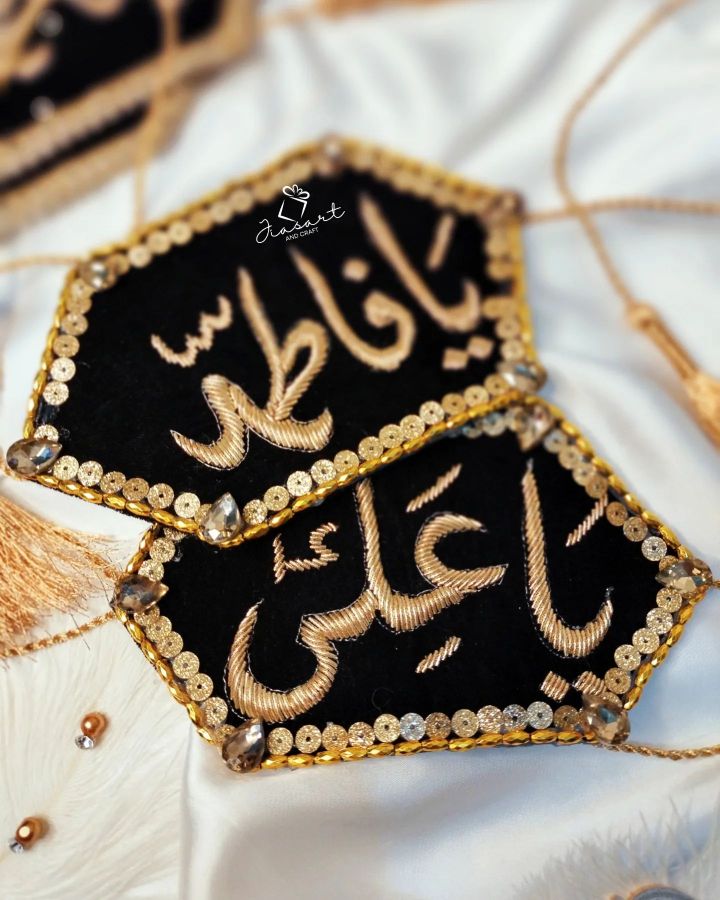 Jiasart
AND CRAFT
يا فاطمه
يَا عَلِىّ